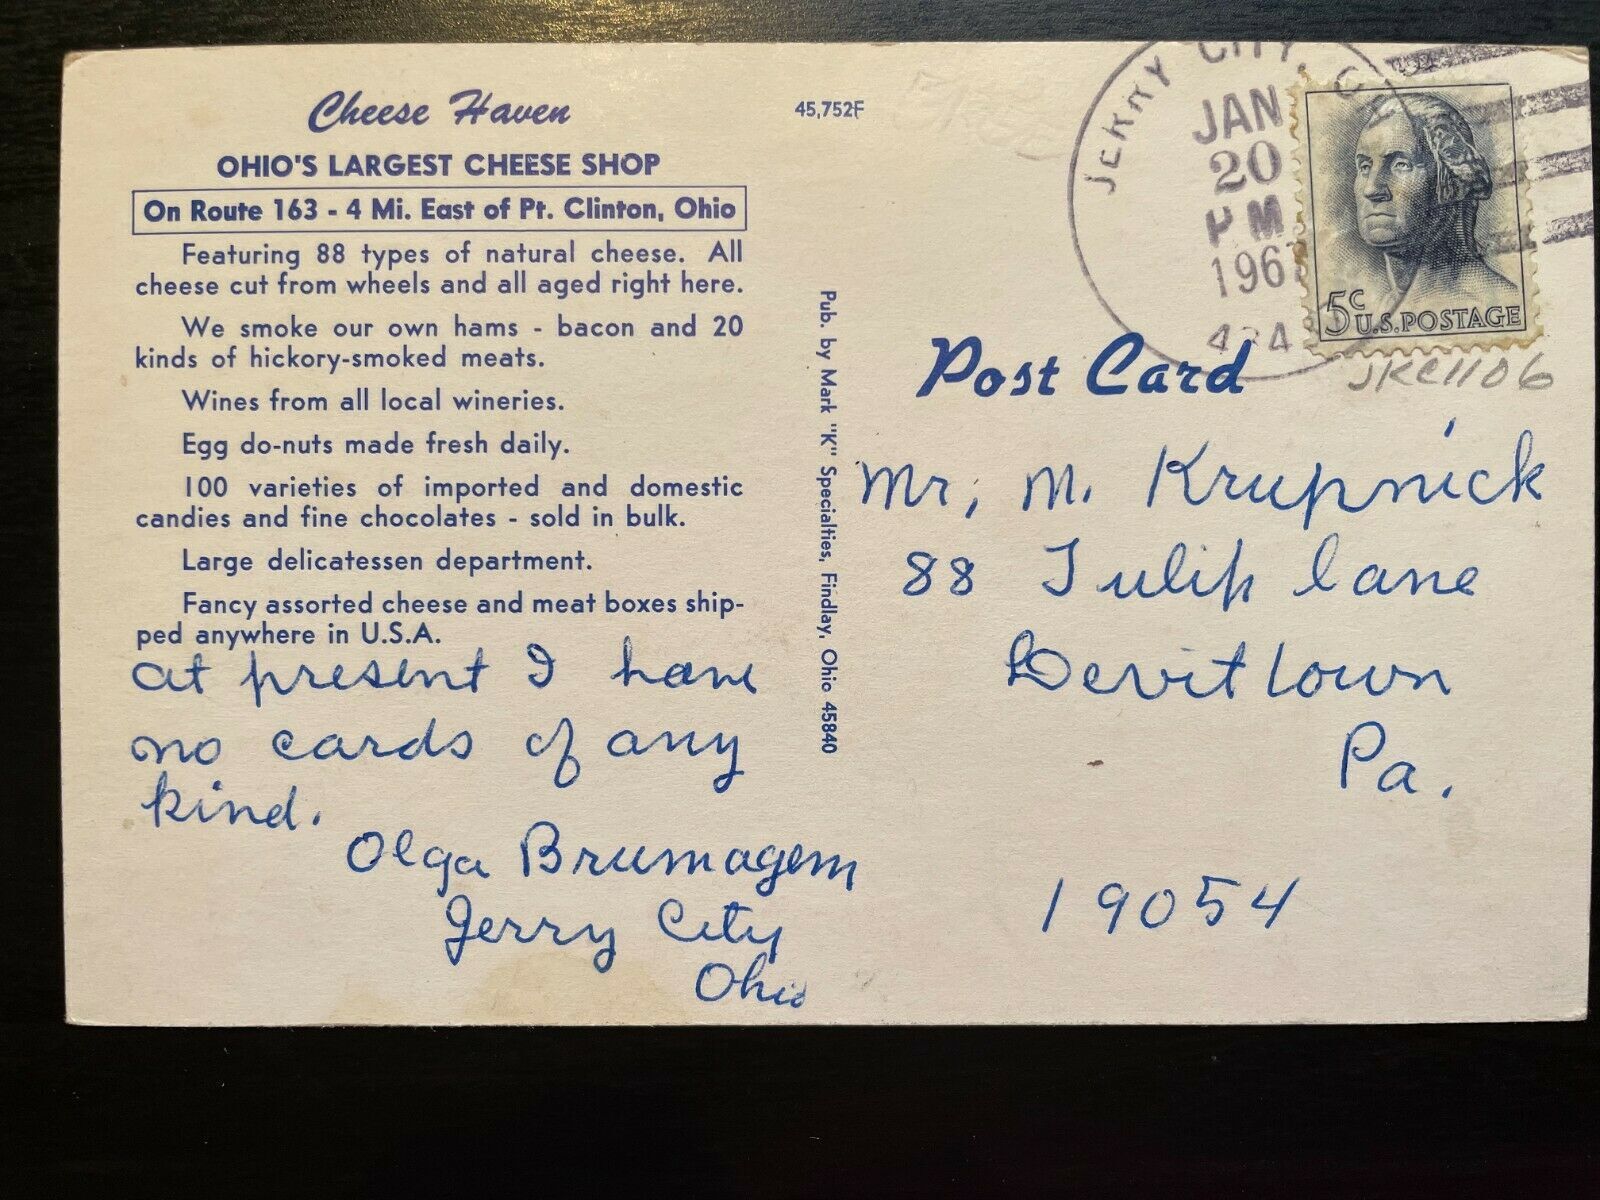 Cheese Haven
OHIO'S LARGEST CHEESE SHOP
On Route 163 - 4 Mi. East of Pt. Clinton, Ohio
Featuring 88 types of natural cheese. All
cheese cut from wheels and all aged right here.
We smoke our own hams - bacon and 20
kinds of hickory-smoked meats.
Wines from all local wineries.
Egg do-nuts made fresh daily.
100 varieties of imported and domestic
candies and fine chocolates - sold in bulk.
Large delicatessen department.
Fancy assorted cheese and meat boxes ship-
ped anywhere in U.S.A.
at present I have
no cards of any
kind.
Olga Brumagem
Jerry City
Ohio
45,752F
Pub. by Mark "K" Specialties, Findlay, Ohio 45840
JERRY CITY, O
JAN
20
PM
196
5c
U.S. POSTAGE
JKC1106
Post Card
Mr, M. Krupnick
88 Tulip lane
Devittown
Pa.
19054